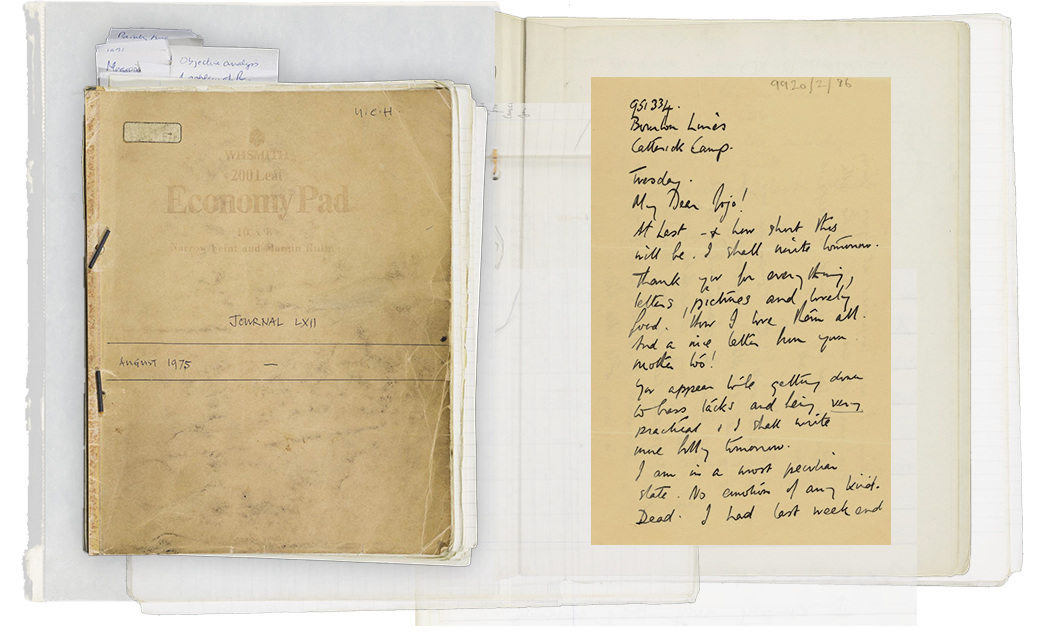 Objective analysis
M·C·H·
WHSMITH
200 Leaf
Economy Pad
JOURNAL LXII
AUGUST 1975 —
9920/2/86
951334.
Lines
Catterick Camp.
Tuesday.
My Dear Jojo!
At Last - & how short this
will be. I shall write tomorrow.
Thank you for everything,
letters, pictures and lovely
food. How I love them all.
And a nice letter from your
mother too!
You appear to be getting down
to brass tacks and being very
practical & I shall write
more fully tomorrow.
I am in a most peculiar
state. No emotion of any kind.
Dead. I had last weekend